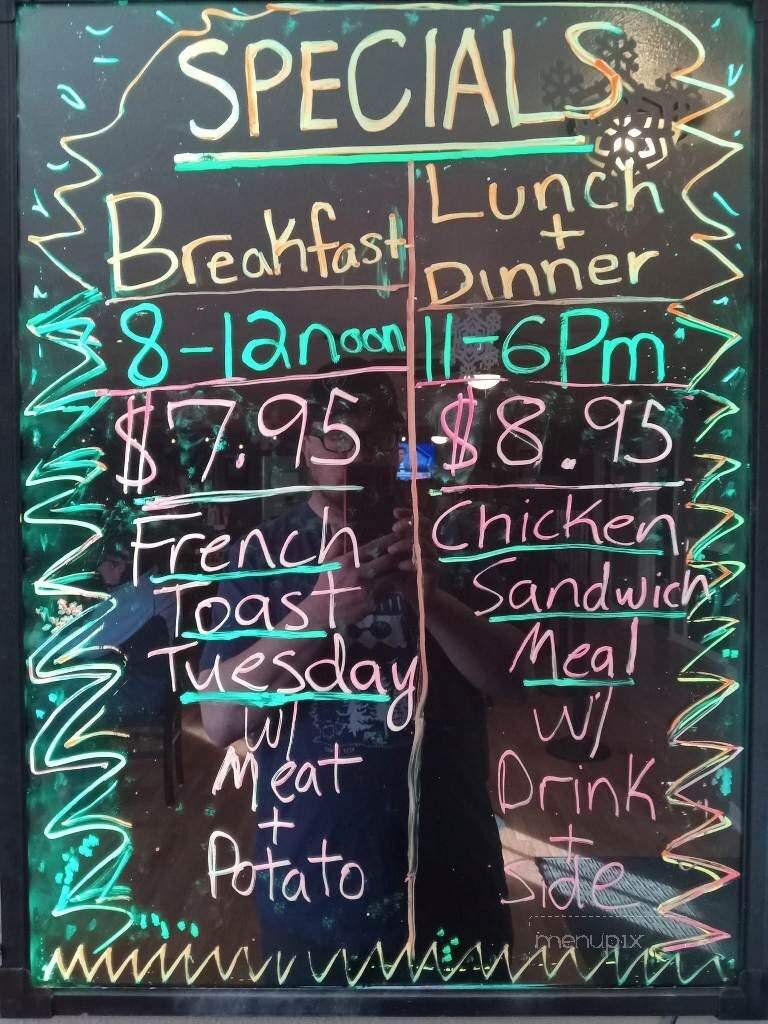 SPECIALS
Breakfast
8-12noon
$7.95
French
Toast
Tuesday
w/
Meat
+
Potato
Lunch
+
Dinner
11-6Pm
$8.95
Chicken
Sandwich
Meal
w/
Drink
+
side
menupix